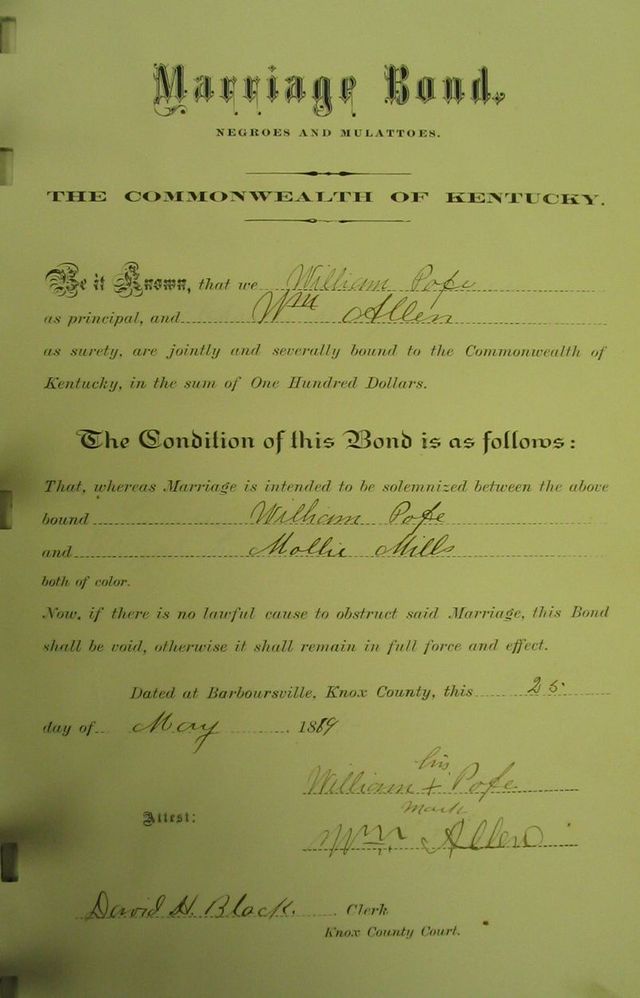 Marriage Bond,
NEGROES AND MULATTOES.
THE COMMONWEALTH OF KENTUCKY.
Be it Known, that we William Pope
as principal, and Wm Allen
as surety, are jointly and severally bound to the Commonwealth of
Kentucky, in the sum of One Hundred Dollars.
The Condition of this Bond is as follows:
That, whereas Marriage is intended to be solemnized between the above
bound William Pope
and Mollie Mills
both of color.
Now, if there is no lawful cause to obstruct said Marriage, this Bond
shall be void, otherwise it shall remain in full force and effect.
Dated at Barboursville, Knox County, this 25
day of May 1889
his
William + Pope
mark
Attest:
Wm Allen
David H. Black. Clerk
Knox County Court.